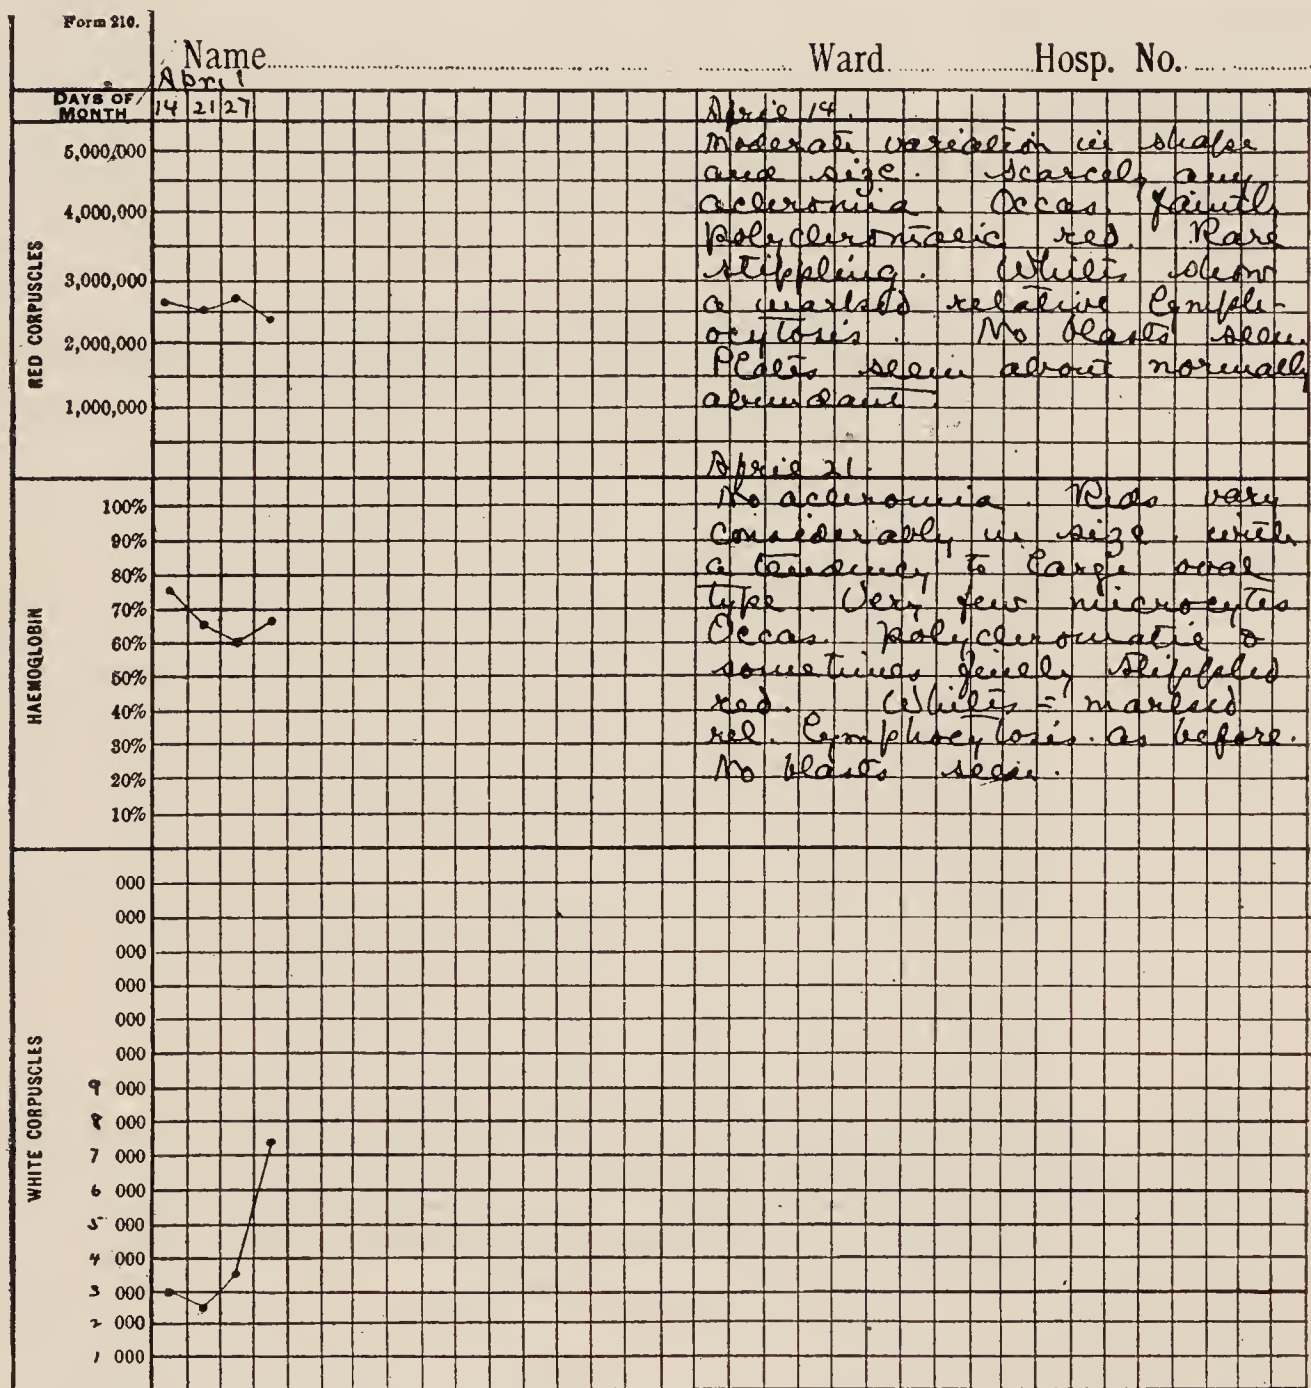 Form 210.
Name Ward Hosp. No.
April
DAYS OF MONTH 14 21 27
RED CORPUSCLES
5,000,000
4,000,000
3,000,000
2,000,000
1,000,000
HAEMOGLOBIN
100%
90%
80%
70%
60%
50%
40%
30%
20%
10%
WHITE CORPUSCLES
000
000
000
000
000
000
9 000
8 000
7 000
6 000
5 000
4 000
3 000
2 000
1 000
April 14.
Moderate variation in shape
and size. Scarcely any
achromia. Occas. faintly
polychromatic red. Rare
stippling. Whites show
a marked relative lymph-
ocytosis. No blasts seen.
Plates seem about normally
abundant.
April 21.
No achromia. Reds vary
considerably in size, with
a tendency to large oval
type. Very few microcytes
Occas. polychromatic &
sometimes finely stippled
red. Whites = marked
rel. lymphocytosis. as before.
No blasts seen.